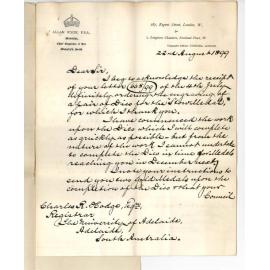 ALLAN WYON, ESQ.
22nd August 1899
Dear Sir,
I beg to acknowledge the receipt
of your letter (603/99) of the 4th July
definitely ordering the engraving of
a pair of Dies for the Stow Medal
for which I thank you.
I have commenced the work
upon the Dies which I will complete
as quickly as possible, but from the
nature of the work I cannot undertake
to complete the Dies in time for Medals
reaching you in December next.
I note your instructions to
send you two Gold Medals upon the
completion of the Dies & that your
Council
Charles R. Hodge, Esq.
Registrar
The University of Adelaide,
Adelaide,
South Australia.